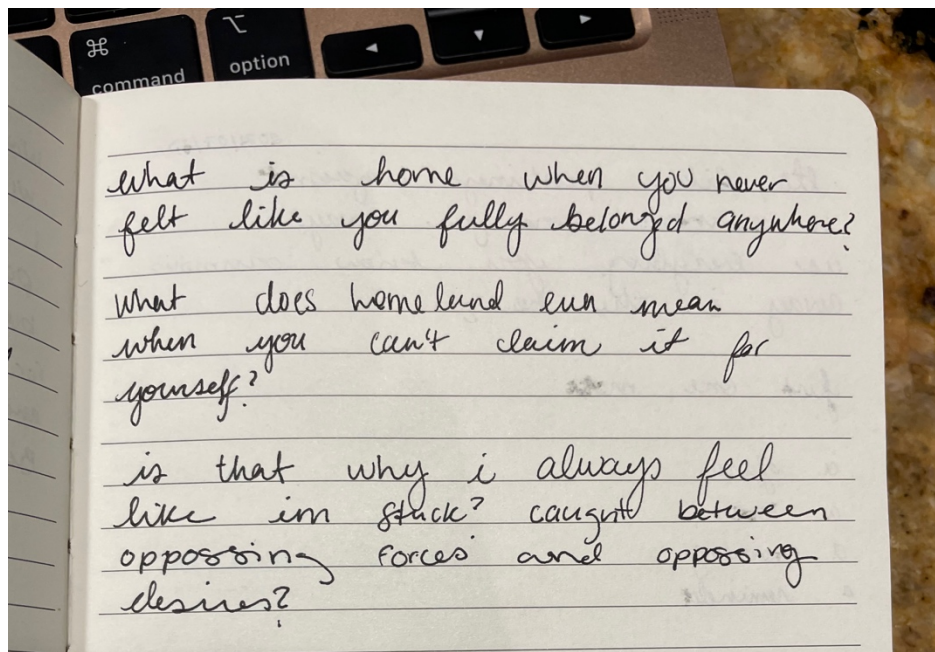 ⌘
command
⌥
option
◄
▼
►
what is home when you never
felt like you fully belonged anywhere?
What does homeland even mean
when you can't claim it for
yourself?
is that why i always feel
like im stuck? caught between
oppossing forces and oppossing
desires?